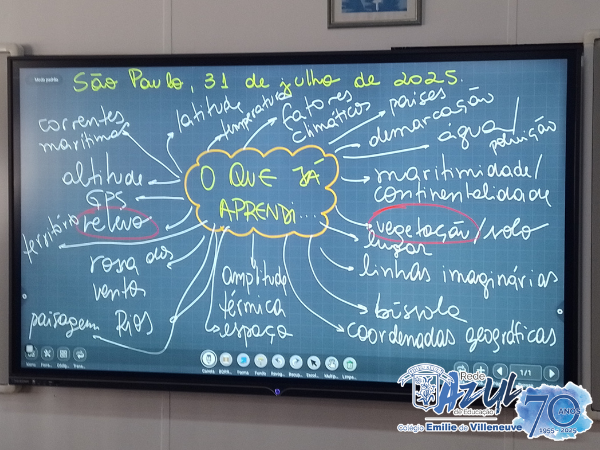 Modo padrão
São Paulo, 31 de julho de 2025.
correntes
marítimas
latitude
temperatura
fatores
climáticos
países
demarcação
água/
poluição
altitude
GPS
relevo
território
O QUE JÁ
APRENDI...
maritimidade/
continentalidade
vegetação/solo
lugar
rosa dos
ventos
paisagem Rios
amplitude
térmica
espaço
linhas imaginárias
bússola
coordenadas geográficas
1/1
Rede
AZUL
de Educação
Colégio Emilie de Villeneuve
70 ANOS
1955-2025